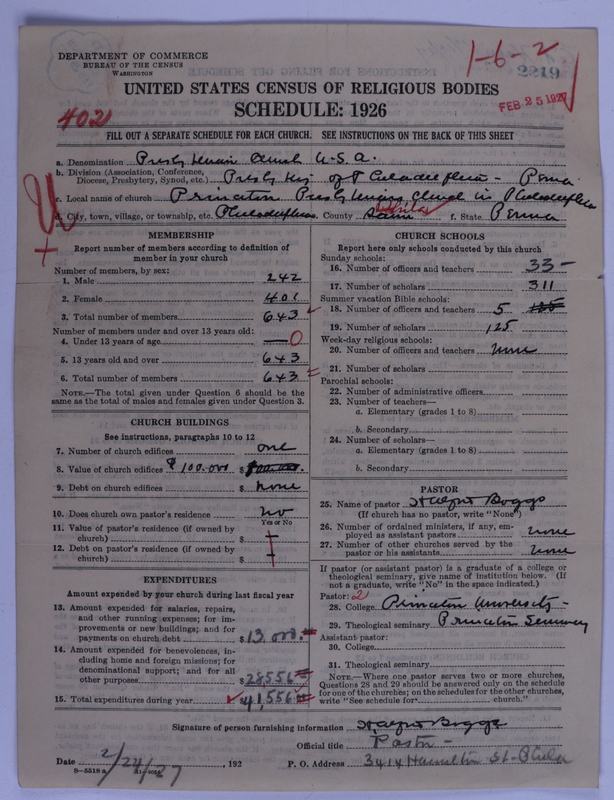 DEPARTMENT OF COMMERCE
BUREAU OF THE CENSUS
WASHINGTON
1-6-2
2219
UNITED STATES CENSUS OF RELIGIOUS BODIES
FEB 25 1927
SCHEDULE: 1926
402
FILL OUT A SEPARATE SCHEDULE FOR EACH CHURCH. SEE INSTRUCTIONS ON THE BACK OF THIS SHEET
a. Denomination Presbyterian Church U.S.A.
b. Division (Association, Conference, Diocese, Presbytery, Synod, etc.) Presbytery of Philadelphia - Penna
c. Local name of church Princeton Presbyterian Church in Philadelphia
d. City, town, village, or township, etc. Philadelphia County Phila f. State Penna
MEMBERSHIP
Report number of members according to definition of
member in your church
Number of members, by sex:
1. Male 242
2. Female 401
3. Total number of members 643
Number of members under and over 13 years old:
4. Under 13 years of age 0
5. 13 years old and over 643
6. Total number of members 643
NOTE.—The total given under Question 6 should be
same as the total of males and females given under Question 3.
CHURCH BUILDINGS
See instructions, paragraphs 10 to 12
7. Number of church edifices one
8. Value of church edifices $100.000 $
9. Debt on church edifices $ none
10. Does church own pastor's residence? no
Yes or No
11. Value of pastor's residence (if owned by
church) $
12. Debt on pastor's residence (if owned by
church) $
EXPENDITURES
Amount expended by your church during last fiscal year
13. Amount expended for salaries, repairs,
and other running expenses; for im-
provements or new buildings; and for
payments on church debt $13.000
14. Amount expended for benevolences, in-
cluding home and foreign missions; for
denominational support; and for all
other purposes $28556
15. Total expenditures during year $41,556
CHURCH SCHOOLS
Report here only schools conducted by this church
Sunday schools:
16. Number of officers and teachers 33
17. Number of scholars 311
Summer vacation Bible schools:
18. Number of officers and teachers 5 125
19. Number of scholars 125
Week-day religious schools:
20. Number of officers and teachers none
21. Number of scholars
Parochial schools:
22. Number of administrative officers
23. Number of teachers—
a. Elementary (grades 1 to 8)
b. Secondary
24. Number of scholars—
a. Elementary (grades 1 to 8)
b. Secondary
PASTOR
25. Name of pastor Boggs
(If church has no pastor, write "None")
26. Number of ordained ministers, if any, em-
ployed as assistant pastors none
27. Number of other churches served by the
pastor or his assistants none
If pastor (or assistant pastor) is a graduate of a college or
theological seminary, give name of institution below. (If
not a graduate, write "No" in the space indicated.)
Pastor: 2
28. College Princeton University -
29. Theological seminary Princeton Seminary
Assistant pastor:
30. College
31. Theological seminary
NOTE.—Where one pastor serves two or more churches,
Questions 28 and 29 should be answered only on the schedule
for one of the churches; on the schedules for the other churches,
write "See schedule for church."
Signature of person furnishing information Boggs
Official title Pastor -
Date 2/24/27, 192 P. O. Address 3414 Hamilton St - Phila
8—5518 a